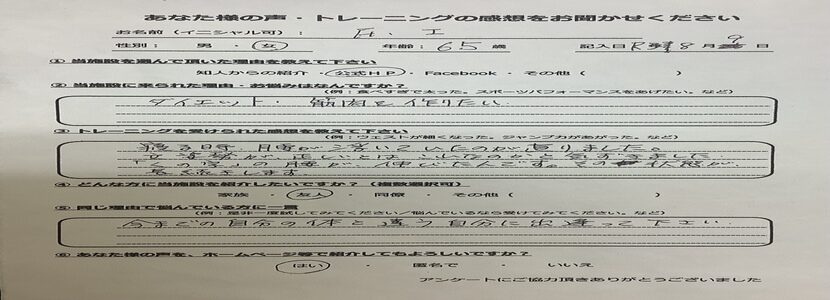 あなた様の声・トレーニングの感想をお聞かせください
お名前(イニシャル可): 
性別: 男 ・ 女 年齢: 65 歳 記入日 8 月 9 日
① 当施設を選んで頂いた理由を教えて下さい
知人からの紹介 ・ 公式HP ・ Facebook ・ その他( )
② 当施設に来られた理由・お悩みはなんですか?
(例:食べすぎて太った。スポーツパフォーマンスをあげたい。など)
ダイエット・筋肉を作りたい
③ トレーニングを受けられた感想を教えて下さい
(例:ウェストが細くなった。ジャンプ力があがった。など)
寝る時、腰が浮いていたのが直りました。
姿勢が正しいとはこんなのかと気づきました
「くの字」の腰が伸びたんです。その状態が
長続きします
④ どんな方に当施設を紹介したいですか?(複数選択可)
家族 ・ 友人 ・ 同僚 ・ その他( )
⑤ 同じ理由で悩んでいる方に一言
(例:是非一度試してみてください/悩んでいるなら受けてみてください。など)
今までの自分の体と違う自分に出逢って下さい
⑥ あなた様の声を、ホームページ等で紹介してもよろしいですか?
はい ・ 匿名で ・ いいえ
アンケートにご協力頂きありがとうございました